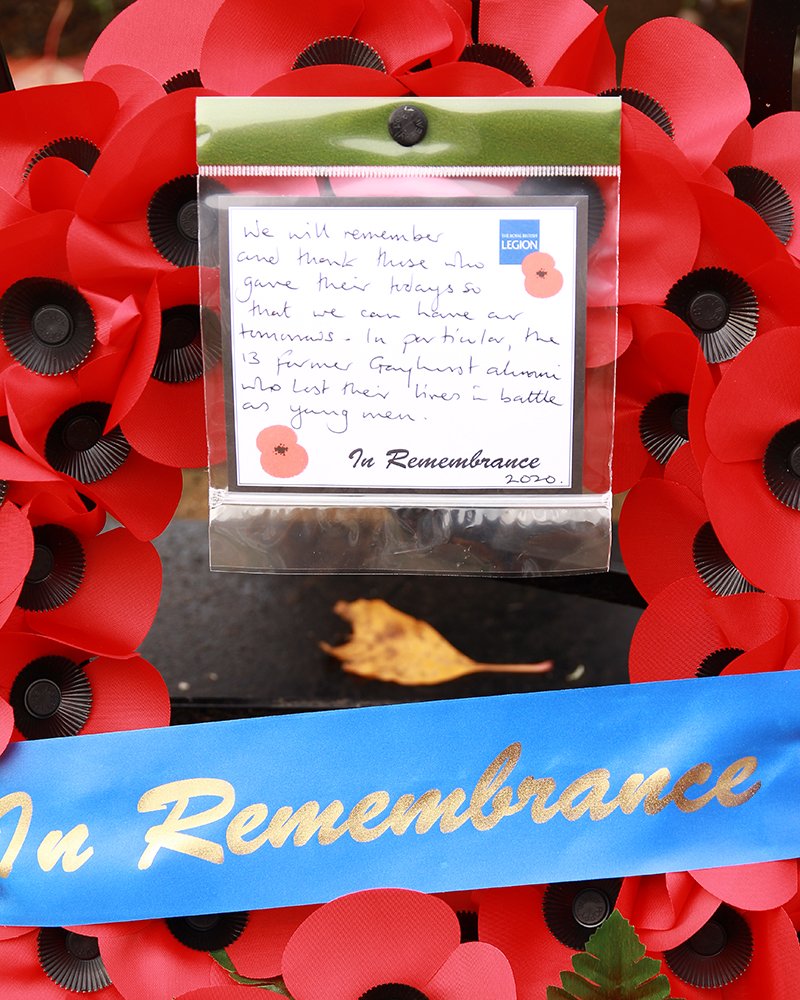 We will remember
THE ROYAL BRITISH
LEGION
and thank those who
gave their todays so
that we can have our
tomorrows. In particular, the
13 former Gayhurst alumni
who lost their lives in battle
as young men.
In Remembrance
2020.
In Remembrance